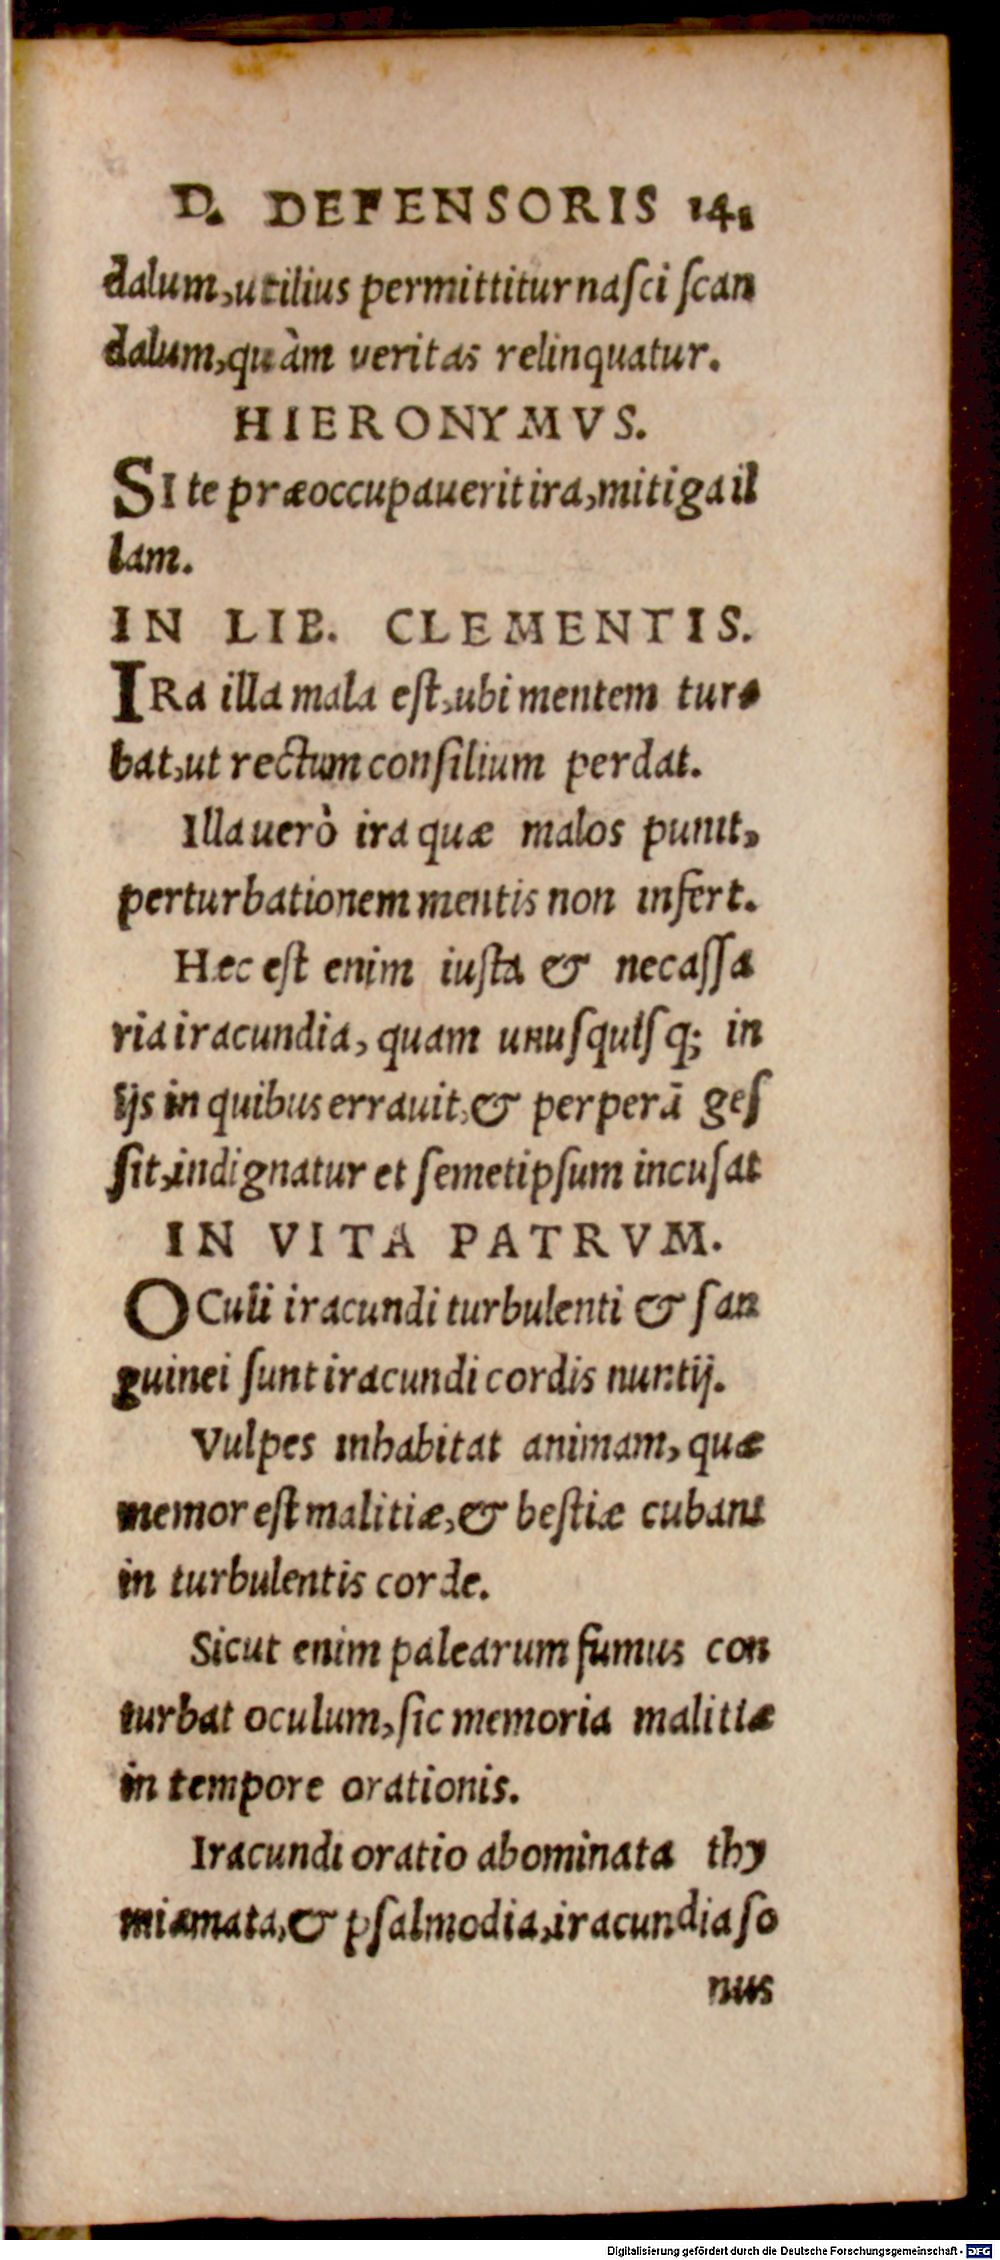 D. DEFENSORIS 141
dalum, utilius permittitur nasci scan
dalum, quàm veritas relinquatur.
HIERONYMVS.
SI te præoccupauerit ira, mitiga il
lam.
IN LIB. CLEMENTIS.
IRa illa mala est, ubi mentem tur-
bat, ut rectum consilium perdat.
Illa uerò ira quæ malos punit,
perturbationem mentis non infert.
Hæc est enim iusta & necassa
ria iracundia, quam unusquisq; in
ijs in quibus errauit, & perperā ges
sit, indignatur et semetipsum incusat
IN VITA PATRVM.
OCuli iracundi turbulenti & san
guinei sunt iracundi cordis nuntij.
Vulpes inhabitat animam, quæ
memor est malitiæ, & bestiæ cubant
in turbulentis corde.
Sicut enim palearum fumus con
turbat oculum, sic memoria malitiæ
in tempore orationis.
Iracundi oratio abominata thy
miamata, & psalmodia, iracundia so
nus
Digitalisierung gefördert durch die Deutsche Forschungsgemeinschaft - DFG